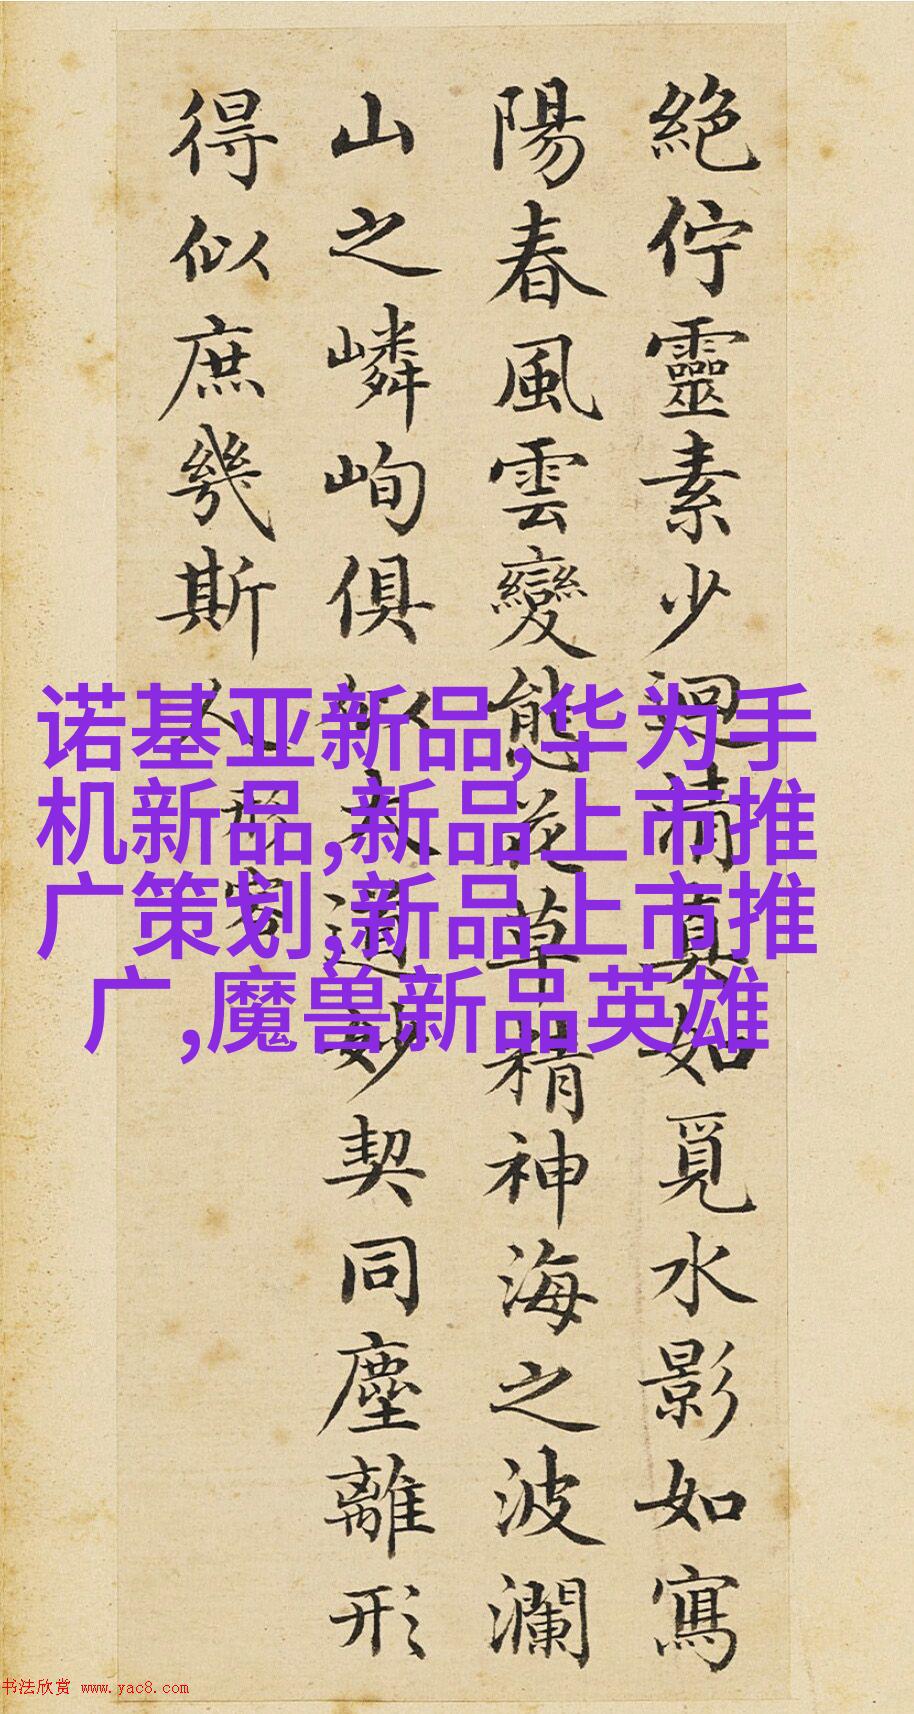 絶佇靈素少迴清真如覓水影如寫
陽春風雲變態花草精神海之波瀾
山之嶙峋俱似大道妙契同塵離形
得似庶幾斯人
形容
诺基亚新品,华为手
机新品,新品上市推
广策划,新品上市推
广,魔兽新品英雄
书法欣赏 www.yac8.com